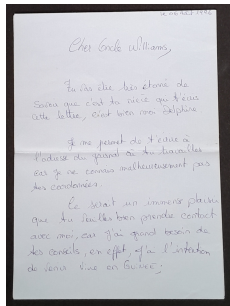 Cher Oncle Williams,
Tu vas être très étonné de
savoir que c'est ta nièce qui t'écris
cette lettre, c'est bien moi Delphine
Je me permet de t'écrire à
l'adresse du grand où tu travailles
car je ne connais malheureusement pas
tes coordonnées.
Ce serait un immense plaisir
que tu veuilles bien prendre contact
avec moi, car j'ai grand besoin de
tes conseils, en effet, j'ai l'intention
de venir vivre en